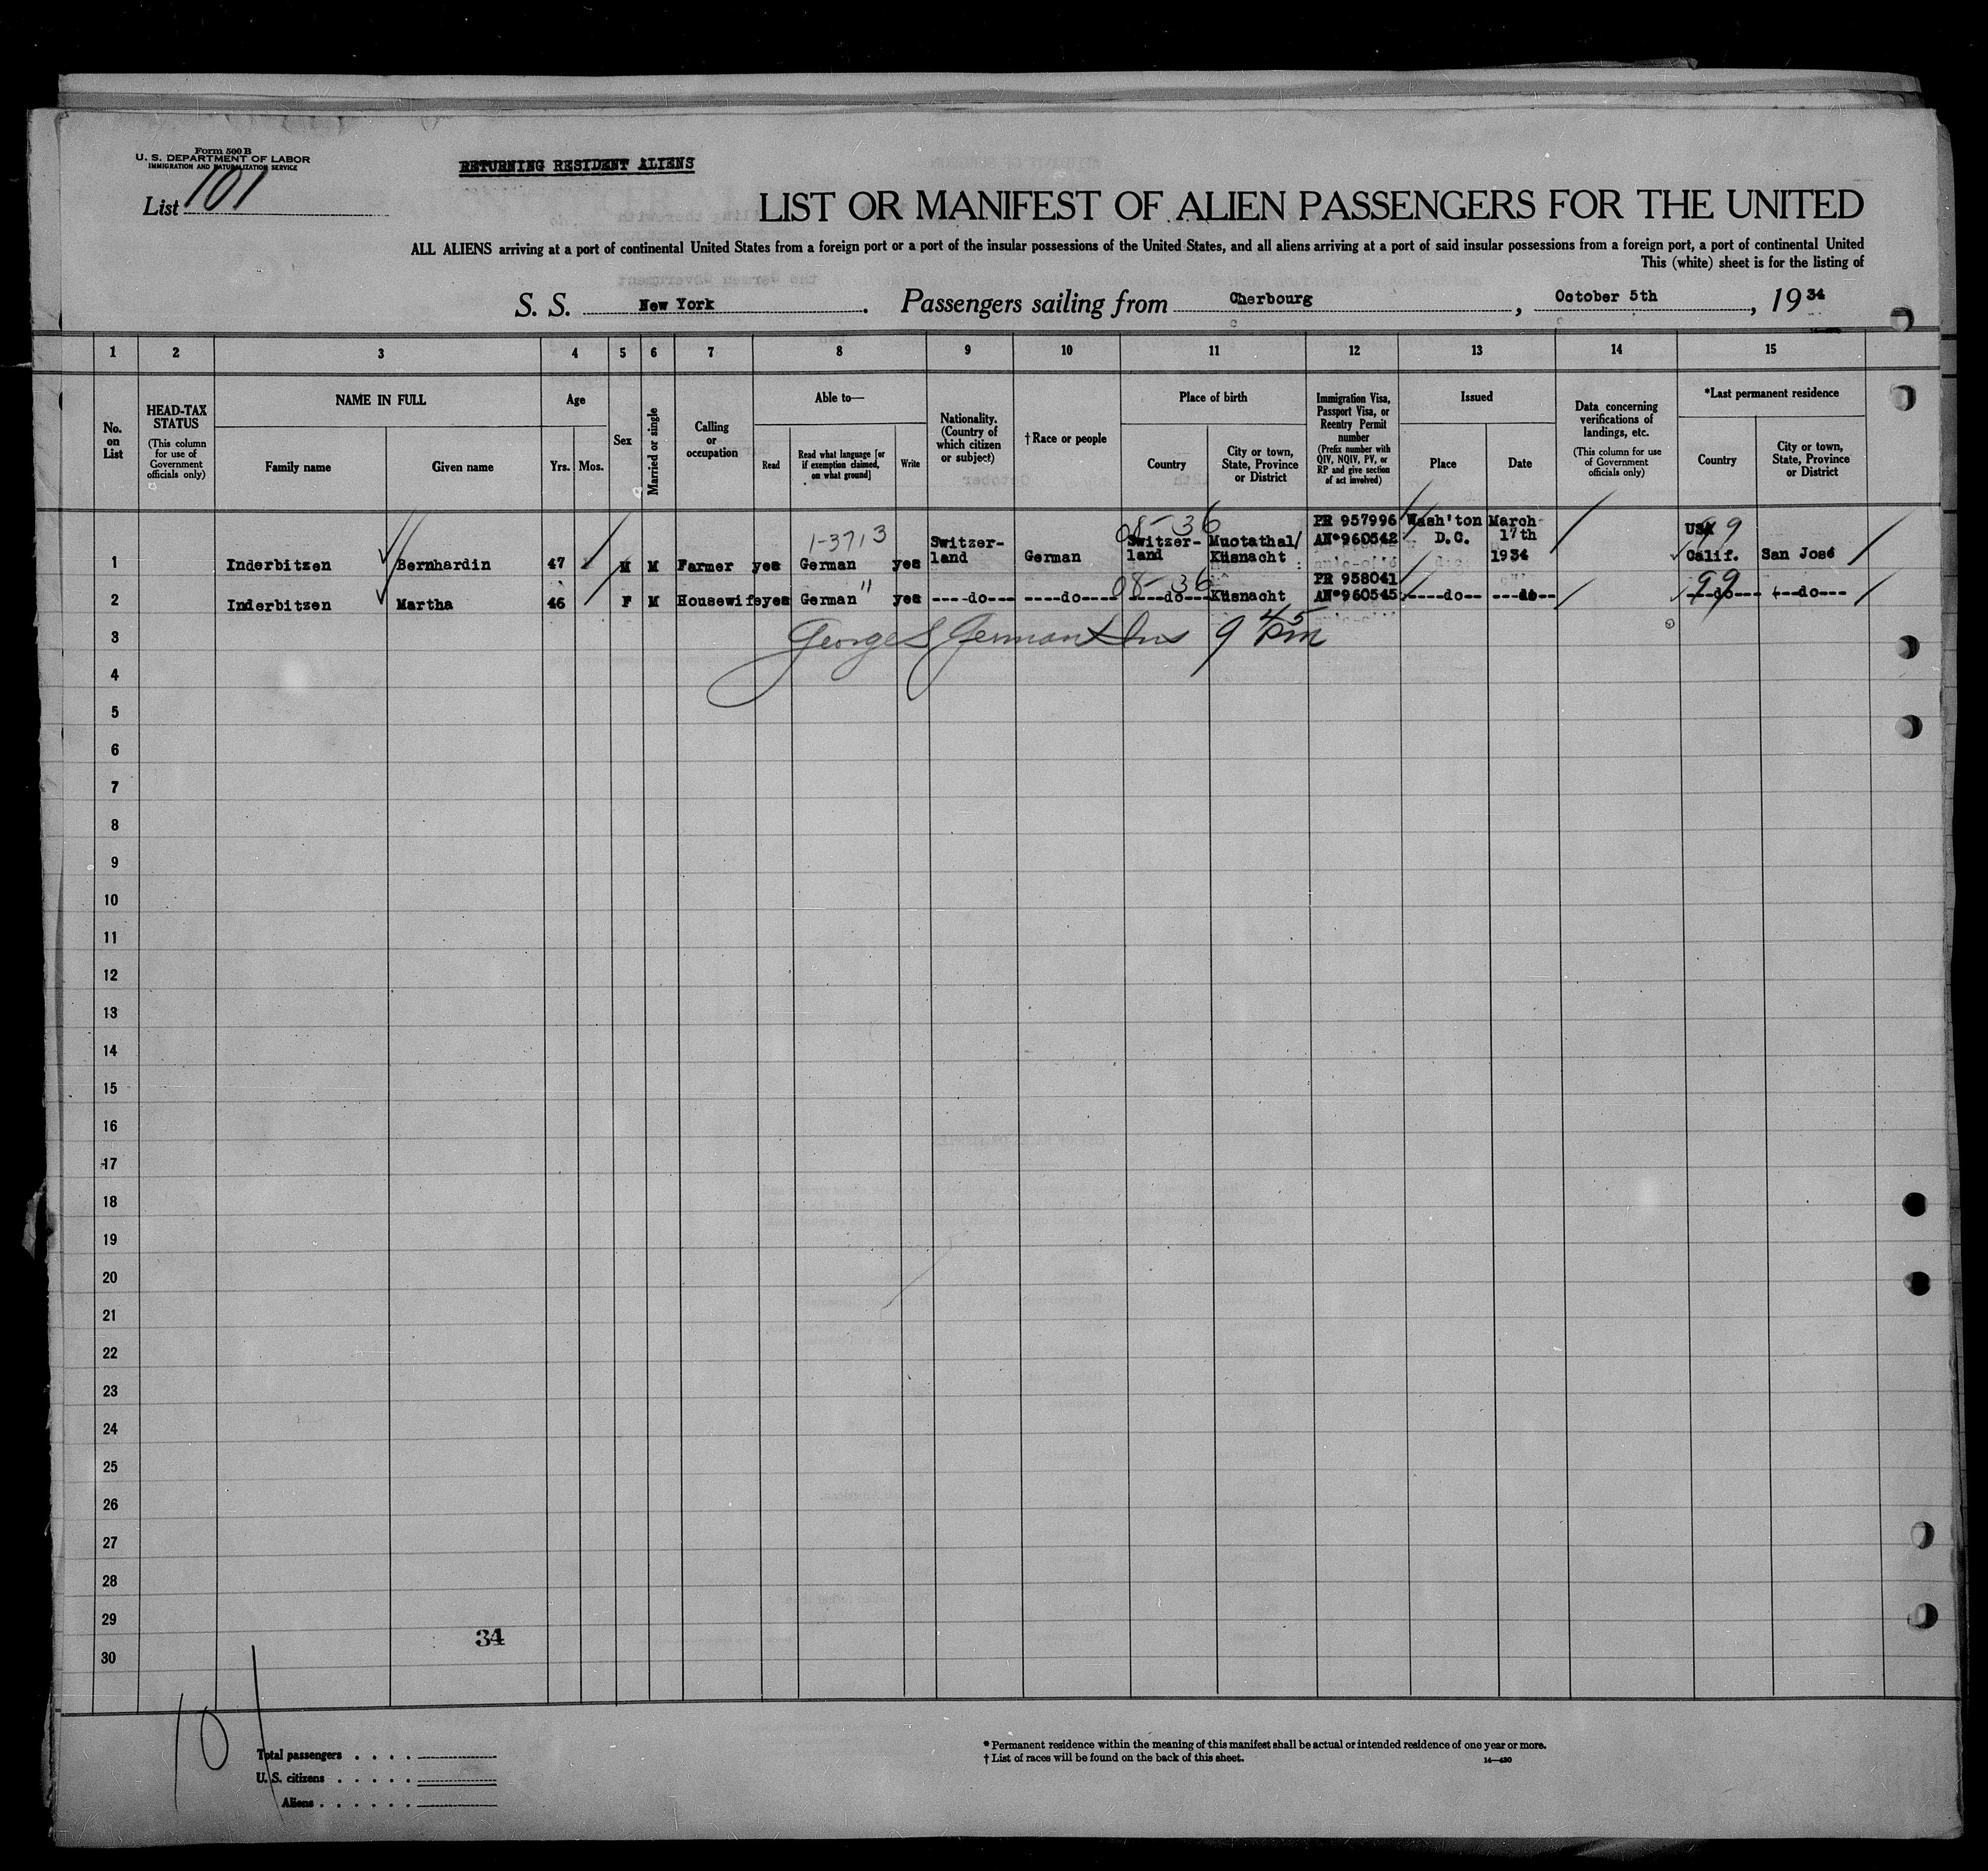 Form 500 B
U. S. DEPARTMENT OF LABOR
IMMIGRATION AND NATURALIZATION SERVICE
RETURNING RESIDENT ALIENS
List 101
LIST OR MANIFEST OF ALIEN PASSENGERS FOR THE UNITED
ALL ALIENS arriving at a port of continental United States from a foreign port or a port of the insular possessions of the United States, and all aliens arriving at a port of said insular possessions from a foreign port, a port of continental United
This (white) sheet is for the listing of
S. S. New York. Passengers sailing from Cherbourg, October 5th, 1934
1 2 3 4 5 6 7 8 9 10 11 12 13 14 15
No. on List
HEAD-TAX STATUS
(This column for use of Government officials only)
NAME IN FULL
Family name
Given name
Age
Yrs. Mos.
Sex
Married or single
Calling or occupation
Able to—
Read
Read what language [or if exemption claimed, on what ground]
Write
Nationality. (Country of which citizen or subject)
†Race or people
Place of birth
Country
City or town, State, Province or District
Immigration Visa, Passport Visa, or Reentry Permit number
(Prefix number with QIV, NQIV, PV, or RP and give section of act involved)
Issued
Place
Date
Data concerning verifications of landings, etc.
(This column for use of Government officials only)
*Last permanent residence
Country
City or town, State, Province or District
1-3713
08-36
99
1 Inderbitzen Bernhardin 47 M M Farmer yes German yes Switzer-land German Switzer-land Muotathal/Küsnacht PR 957996 AN°960542 Wash'ton D.C. March 17th 1934 USA Calif. San José
08-36
99
2 Inderbitzen Martha 46 F M Housewife yes German " yes ----do--- ----do---- ----do--- Küsnacht PR 958041 AN°960545 ----do-- ---do-- ---do--- ---do---
3
George S German Ins 9 45 pm
4
5
6
7
8
9
10
11
12
13
14
15
16
17
18
19
20
21
22
23
24
25
26
27
28
29
34
30
101
Total passengers . . . .
U. S. citizens . . . . .
Aliens . . . . . .
* Permanent residence within the meaning of this manifest shall be actual or intended residence of one year or more.
† List of races will be found on the back of this sheet.
14—430